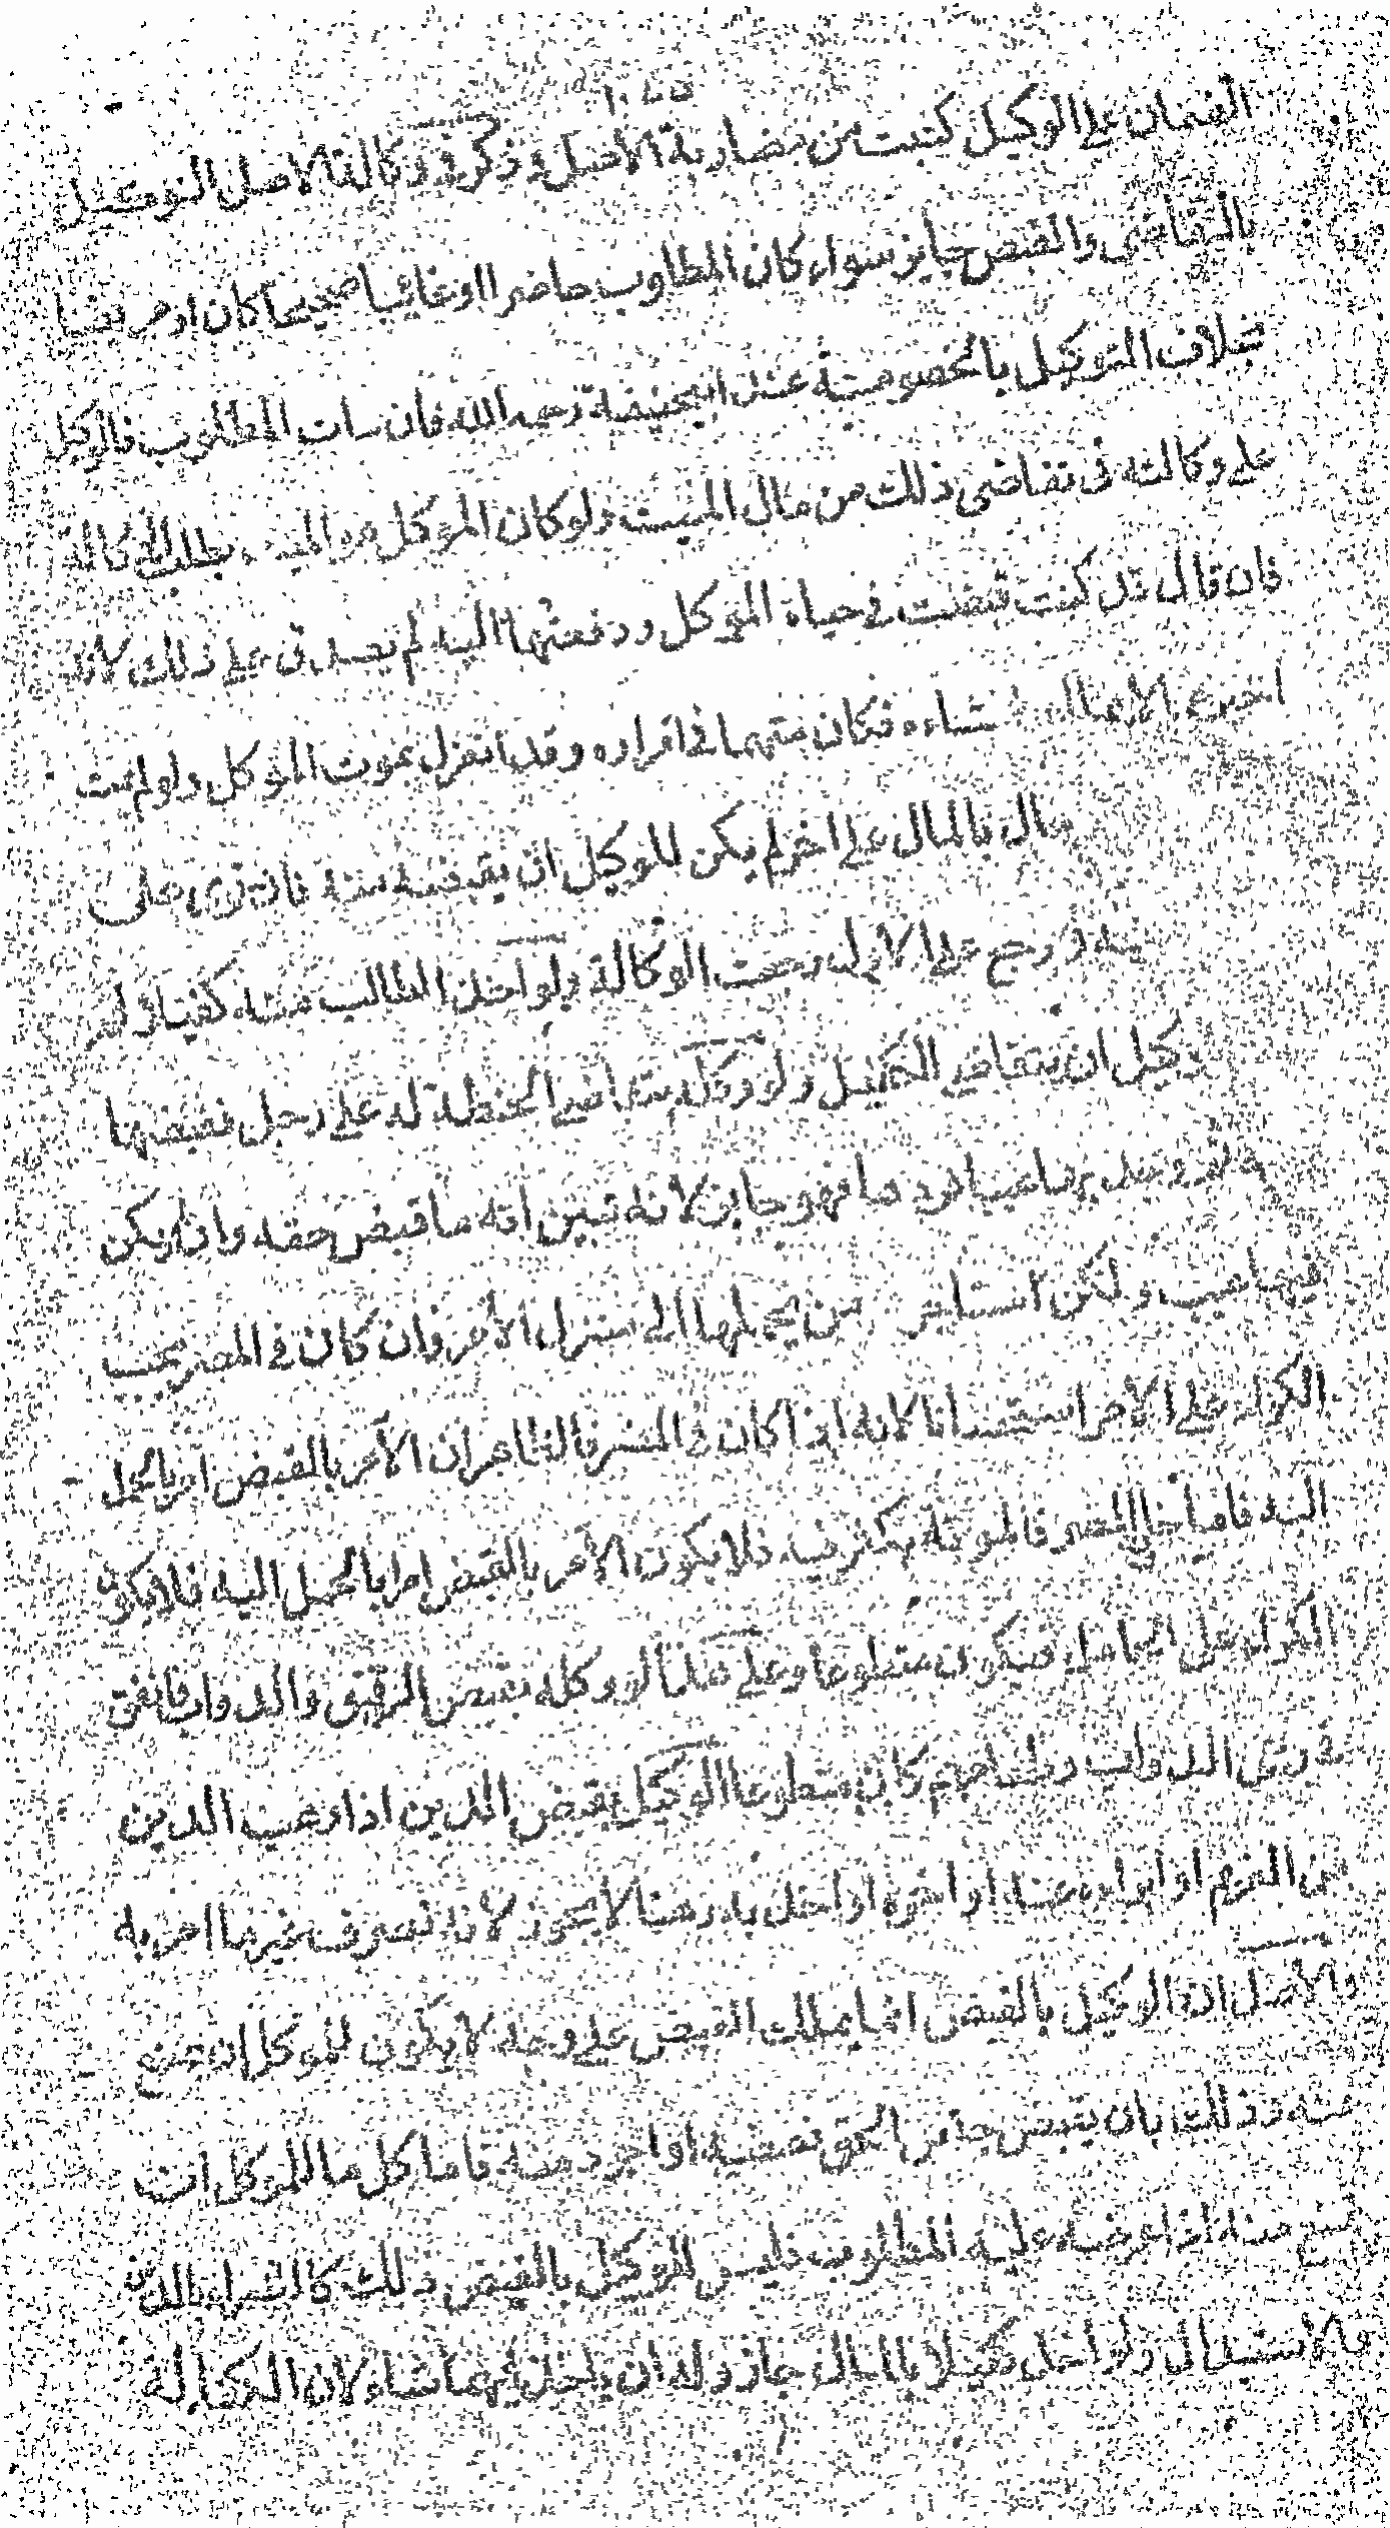 الضمان على الوكيل كتبت من مضاربة الاصل وذكر في وكالة الاصل التوكيل
بالتقاضي والقبض جايز سواء كان المطلوب حاضرا او غائبا صحيحا كان او مريضا
بخلاف التوكيل بالخصومة عند ابي حنيفة رحمه الله فان مات المطلوب فالوكيل
على وكالته في تقاضي ذلك من مال الميت ولو كان الموكل هو الميت بطلت الوكالة
فان قال قد كنت قبضت في حياة الموكل ودفعتها اليه لم يصدق على ذلك لانه
اخبر عما لا انشاءه فكان متهما في اقراره وقد انعزل بموت الموكل ولو لم يمت
مال بالمال على اخر لم يكن للوكيل ان يقبضه منه فان توى على
ورجع على الاول رجعت الوكالة ولو اخذ الطالب منه كفيلا لم
وكيل ان يتقاضى الكفيل ولو وكله بتقاضي حنطة له على رجل فقبضها
ووجد بها عيبا فردها فهو جايز لانه تبين انه ما قبض حقه وان لم يكن
فيها عيب ولكن استاجر من يحملها الى منزل الامر وان كان في المصر يجب
الكراء على الامر استحسانا لانه اذا كان في المصر فالظاهر ان الامر بالقبض امر بالحمل
اليه فاما خارج المصر فالمونة تكثر فيه فلا يكون الامر بالقبض امرا بالحمل اليه فلا يكون
الكراء على الحامل فيكون متطوعا وعلى هذا لو وكله بقبض الرقيق والدواب فانفق
رعى الدواب وطعامهم كان متطوعا الوكيل بقبض الدين اذا وهب الدين
من الغريم او ابراه منه او اخره او اخذ به رهنا لا يجوز لانه تصرف بغير ما امر به
والاصل ان الوكيل بالقبض انما يملك القبض على وجه لا يكون للموكل ان يمتنع
منه وذلك بان يقبض جنس الحق بصفته او اجود منه فاما كل ما للموكل ان
يمتنع منه اذا عرضه عليه المطلوب فليس للوكيل بالقبض ذلك كالشراء بالدين
والاستبدال ولو اخذ كفيلا بالمال جاز وله ان ياخذ ايهما شاء لان الكفالة